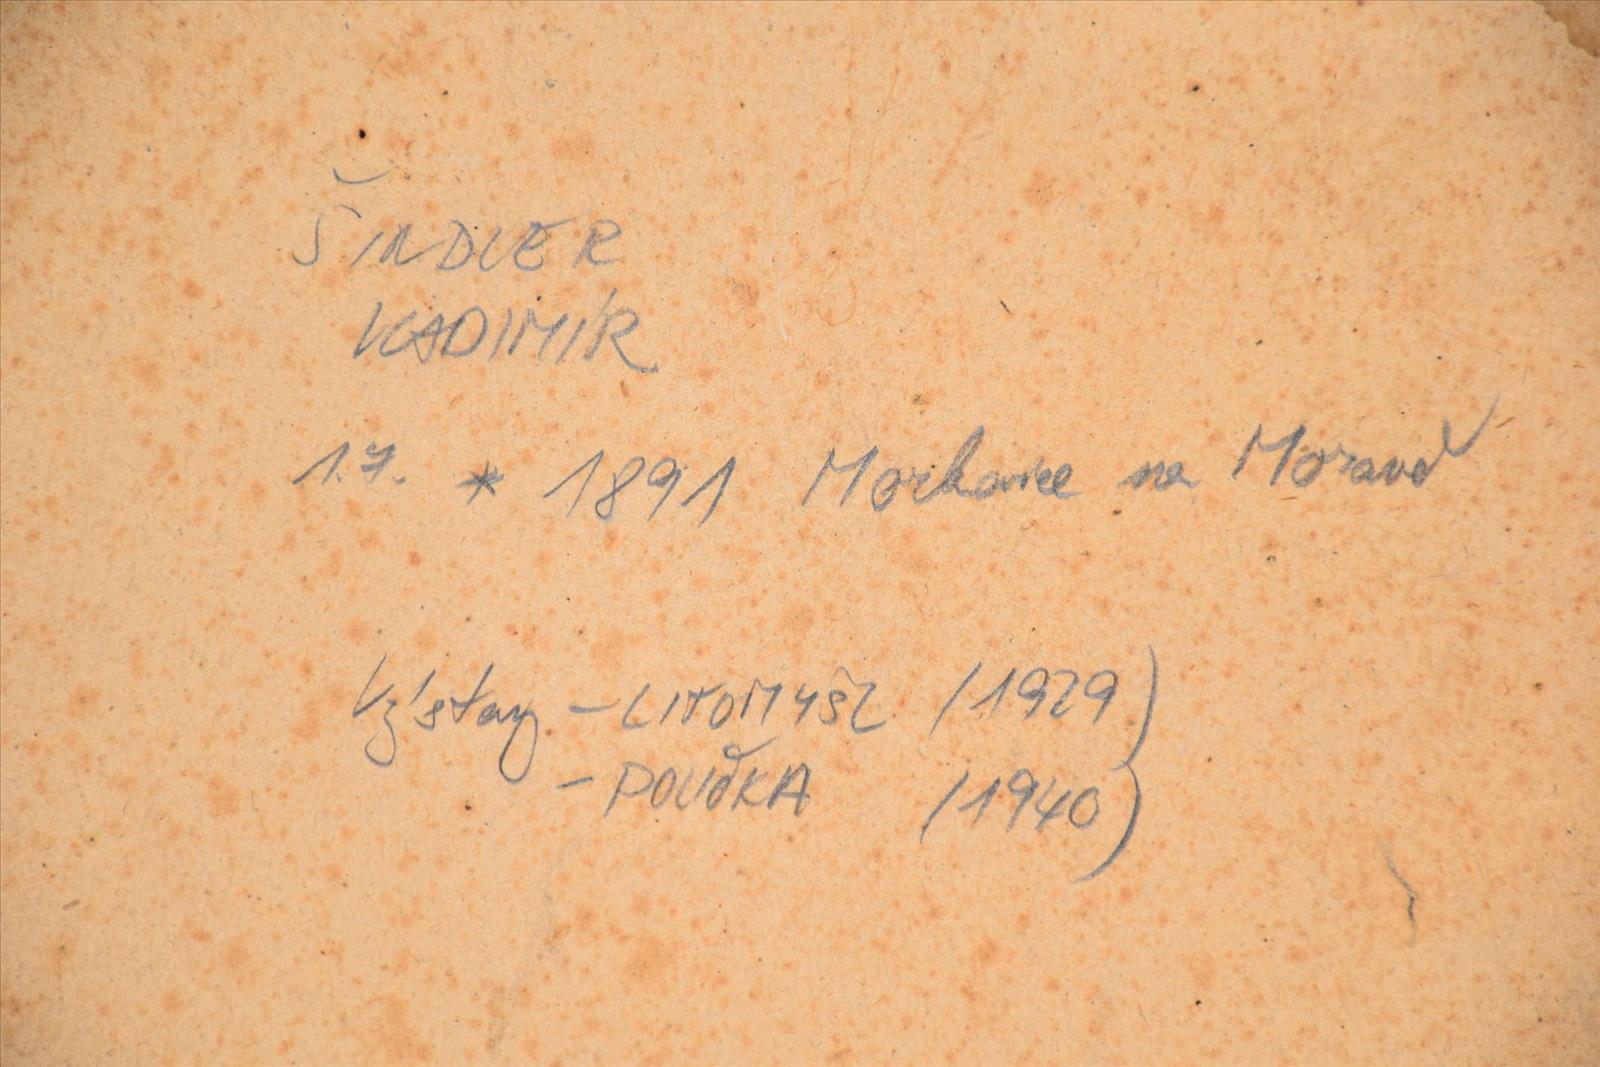 ŠINDLER
VLADIMÍR
1.7. * 1891 Morkovice na Moravě
Výstavy - LITOMYŠL /1929)
- POLIČKA /1940)